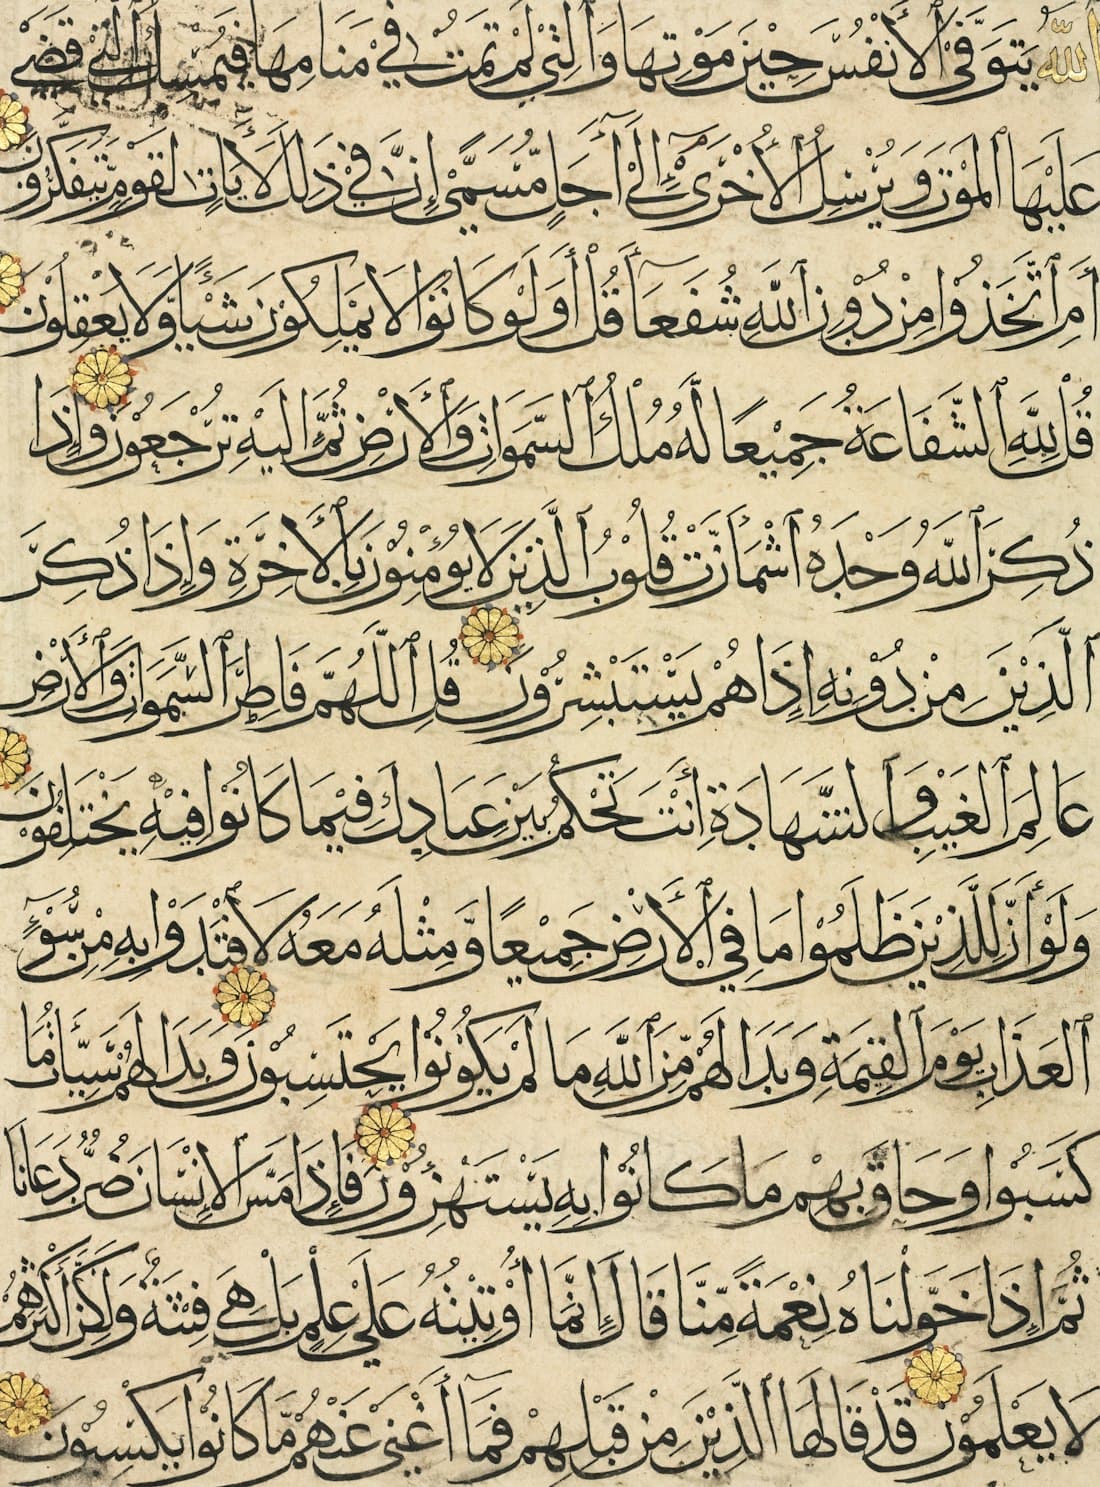 اللَّهُ يَتَوَفَّى الْأَنْفُسَ حِينَ مَوْتِهَا وَالَّتِي لَمْ تَمُتْ فِي مَنَامِهَا فَيُمْسِكُ الَّتِي قَضَى
عَلَيْهَا الْمَوْتَ وَيُرْسِلُ الْأُخْرَى إِلَى أَجَلٍ مُسَمًّى إِنَّ فِي ذَلِكَ لَآيَاتٍ لِقَوْمٍ يَتَفَكَّرُونَ
أَمِ اتَّخَذُوا مِنْ دُونِ اللَّهِ شُفَعَاءَ قُلْ أَوَلَوْ كَانُوا لَا يَمْلِكُونَ شَيْئًا وَلَا يَعْقِلُونَ
قُلْ لِلَّهِ الشَّفَاعَةُ جَمِيعًا لَهُ مُلْكُ السَّمَوَاتِ وَالْأَرْضِ ثُمَّ إِلَيْهِ تُرْجَعُونَ وَإِذَا
ذُكِرَ اللَّهُ وَحْدَهُ اشْمَأَزَّتْ قُلُوبُ الَّذِينَ لَا يُؤْمِنُونَ بِالْآخِرَةِ وَإِذَا ذُكِرَ
الَّذِينَ مِنْ دُونِهِ إِذَا هُمْ يَسْتَبْشِرُونَ قُلِ اللَّهُمَّ فَاطِرَ السَّمَوَاتِ وَالْأَرْضِ
عَالِمَ الْغَيْبِ وَالشَّهَادَةِ أَنْتَ تَحْكُمُ بَيْنَ عِبَادِكَ فِيمَا كَانُوا فِيهِ يَخْتَلِفُونَ
وَلَوْ أَنَّ لِلَّذِينَ ظَلَمُوا مَا فِي الْأَرْضِ جَمِيعًا وَمِثْلَهُ مَعَهُ لَافْتَدَوْا بِهِ مِنْ سُوءِ
الْعَذَابِ يَوْمَ الْقِيَمَةِ وَبَدَا لَهُمْ مِنَ اللَّهِ مَا لَمْ يَكُونُوا يَحْتَسِبُونَ وَبَدَا لَهُمْ سَيِّئَاتُ مَا
كَسَبُوا وَحَاقَ بِهِمْ مَا كَانُوا بِهِ يَسْتَهْزِؤُنَ فَإِذَا مَسَّ الْإِنْسَانَ ضُرٌّ دَعَانَا
ثُمَّ إِذَا خَوَّلْنَاهُ نِعْمَةً مِنَّا قَالَ إِنَّمَا أُوتِيتُهُ عَلَى عِلْمٍ بَلْ هِيَ فِتْنَةٌ وَلَكِنَّ أَكْثَرَهُمْ
لَا يَعْلَمُونَ قَدْ قَالَهَا الَّذِينَ مِنْ قَبْلِهِمْ فَمَا أَغْنَى عَنْهُمْ مَا كَانُوا يَكْسِبُونَ